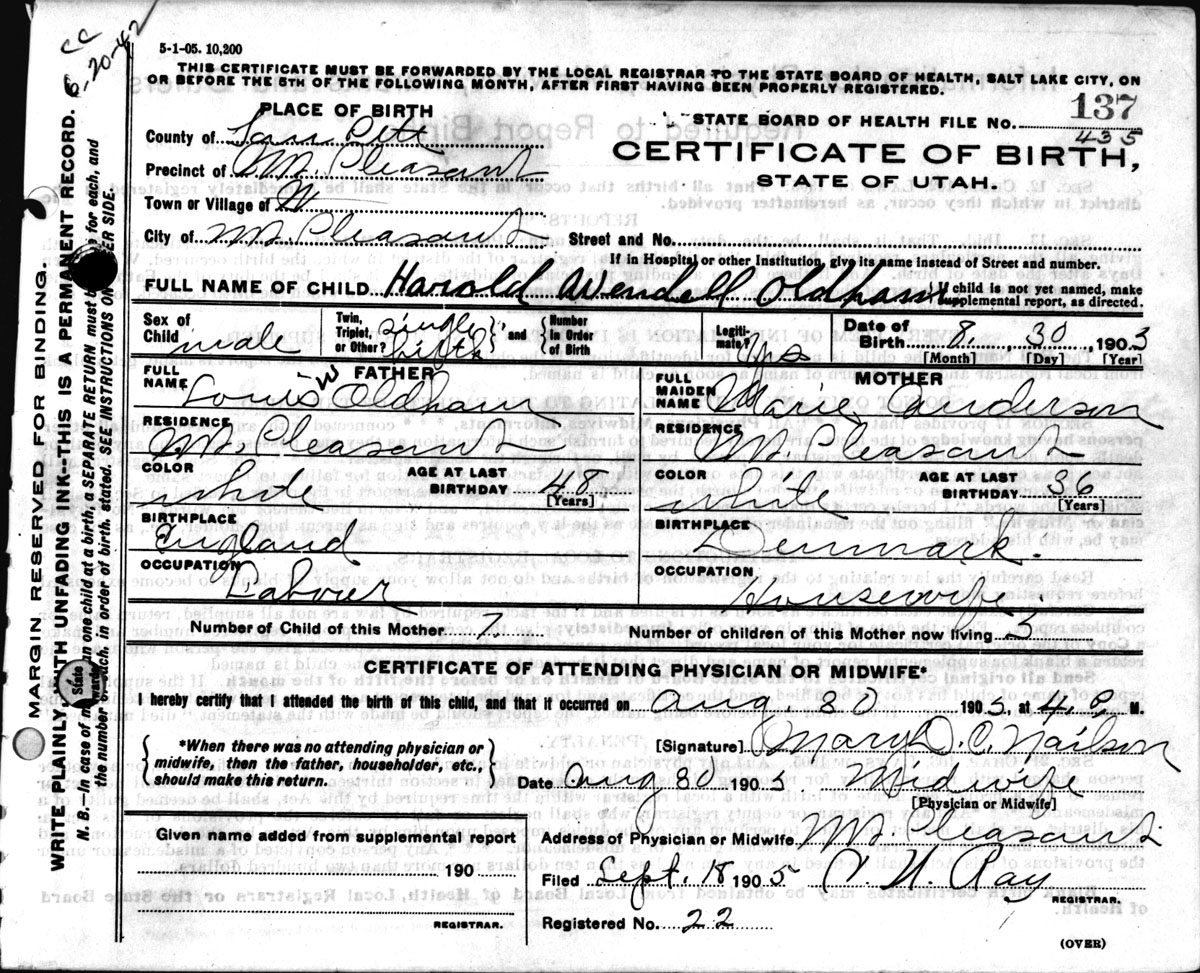 CC
5-20-42
5-1-05. 10,200
THIS CERTIFICATE MUST BE FORWARDED BY THE LOCAL REGISTRAR TO THE STATE BOARD OF HEALTH, SALT LAKE CITY, ON
OR BEFORE THE 5TH OF THE FOLLOWING MONTH, AFTER FIRST HAVING BEEN PROPERLY REGISTERED.
PLACE OF BIRTH
137
STATE BOARD OF HEALTH FILE NO.
435
County of San Pete
CERTIFICATE OF BIRTH,
Precinct of Mt. Pleasant
STATE OF UTAH.
Town or Village of
City of Mt. Pleasant Street and No.
If in Hospital or other Institution, give its name instead of Street and number.
FULL NAME OF CHILD Harold Wendell Oldham
If child is not yet named, make
supplemental report, as directed.
Sex of Child male
Twin, Triplet, or Other? single birth and Number in Order of Birth
Legiti-mate? Yes
Date of Birth 8. 30 1905
[Month] [Day] [Year]
FATHER
FULL NAME Louis W Oldham
RESIDENCE Mt. Pleasant
COLOR white AGE AT LAST BIRTHDAY 48 [Years]
BIRTHPLACE England
OCCUPATION Laborer
MOTHER
FULL MAIDEN NAME Marie Anderson
RESIDENCE Mt. Pleasant
COLOR white AGE AT LAST BIRTHDAY 36 [Years]
BIRTHPLACE Denmark.
OCCUPATION Housewife
Number of Child of this Mother 7 Number of children of this Mother now living 5
CERTIFICATE OF ATTENDING PHYSICIAN OR MIDWIFE*
I hereby certify that I attended the birth of this child, and that it occurred on Aug. 30 1905, at 4. P. M.
*When there was no attending physician or
midwife, then the father, householder, etc.,
should make this return.
[Signature] Mary D. C. Neilson
Date Aug 30 1905 Midwife
[Physician or Midwife]
Given name added from supplemental report
190
REGISTRAR.
Address of Physician or Midwife Mt Pleasant.
Filed Sept. 18 1905 Ray
REGISTRAR.
Registered No. 22
(OVER)
MARGIN RESERVED FOR BINDING.
WRITE PLAINLY, WITH UNFADING INK--THIS IS A PERMANENT RECORD.
N. B.--In case of more than one child at a birth, a SEPARATE RETURN must be made for each, and
the number of each, in order of birth, stated. SEE INSTRUCTIONS ON OTHER SIDE.